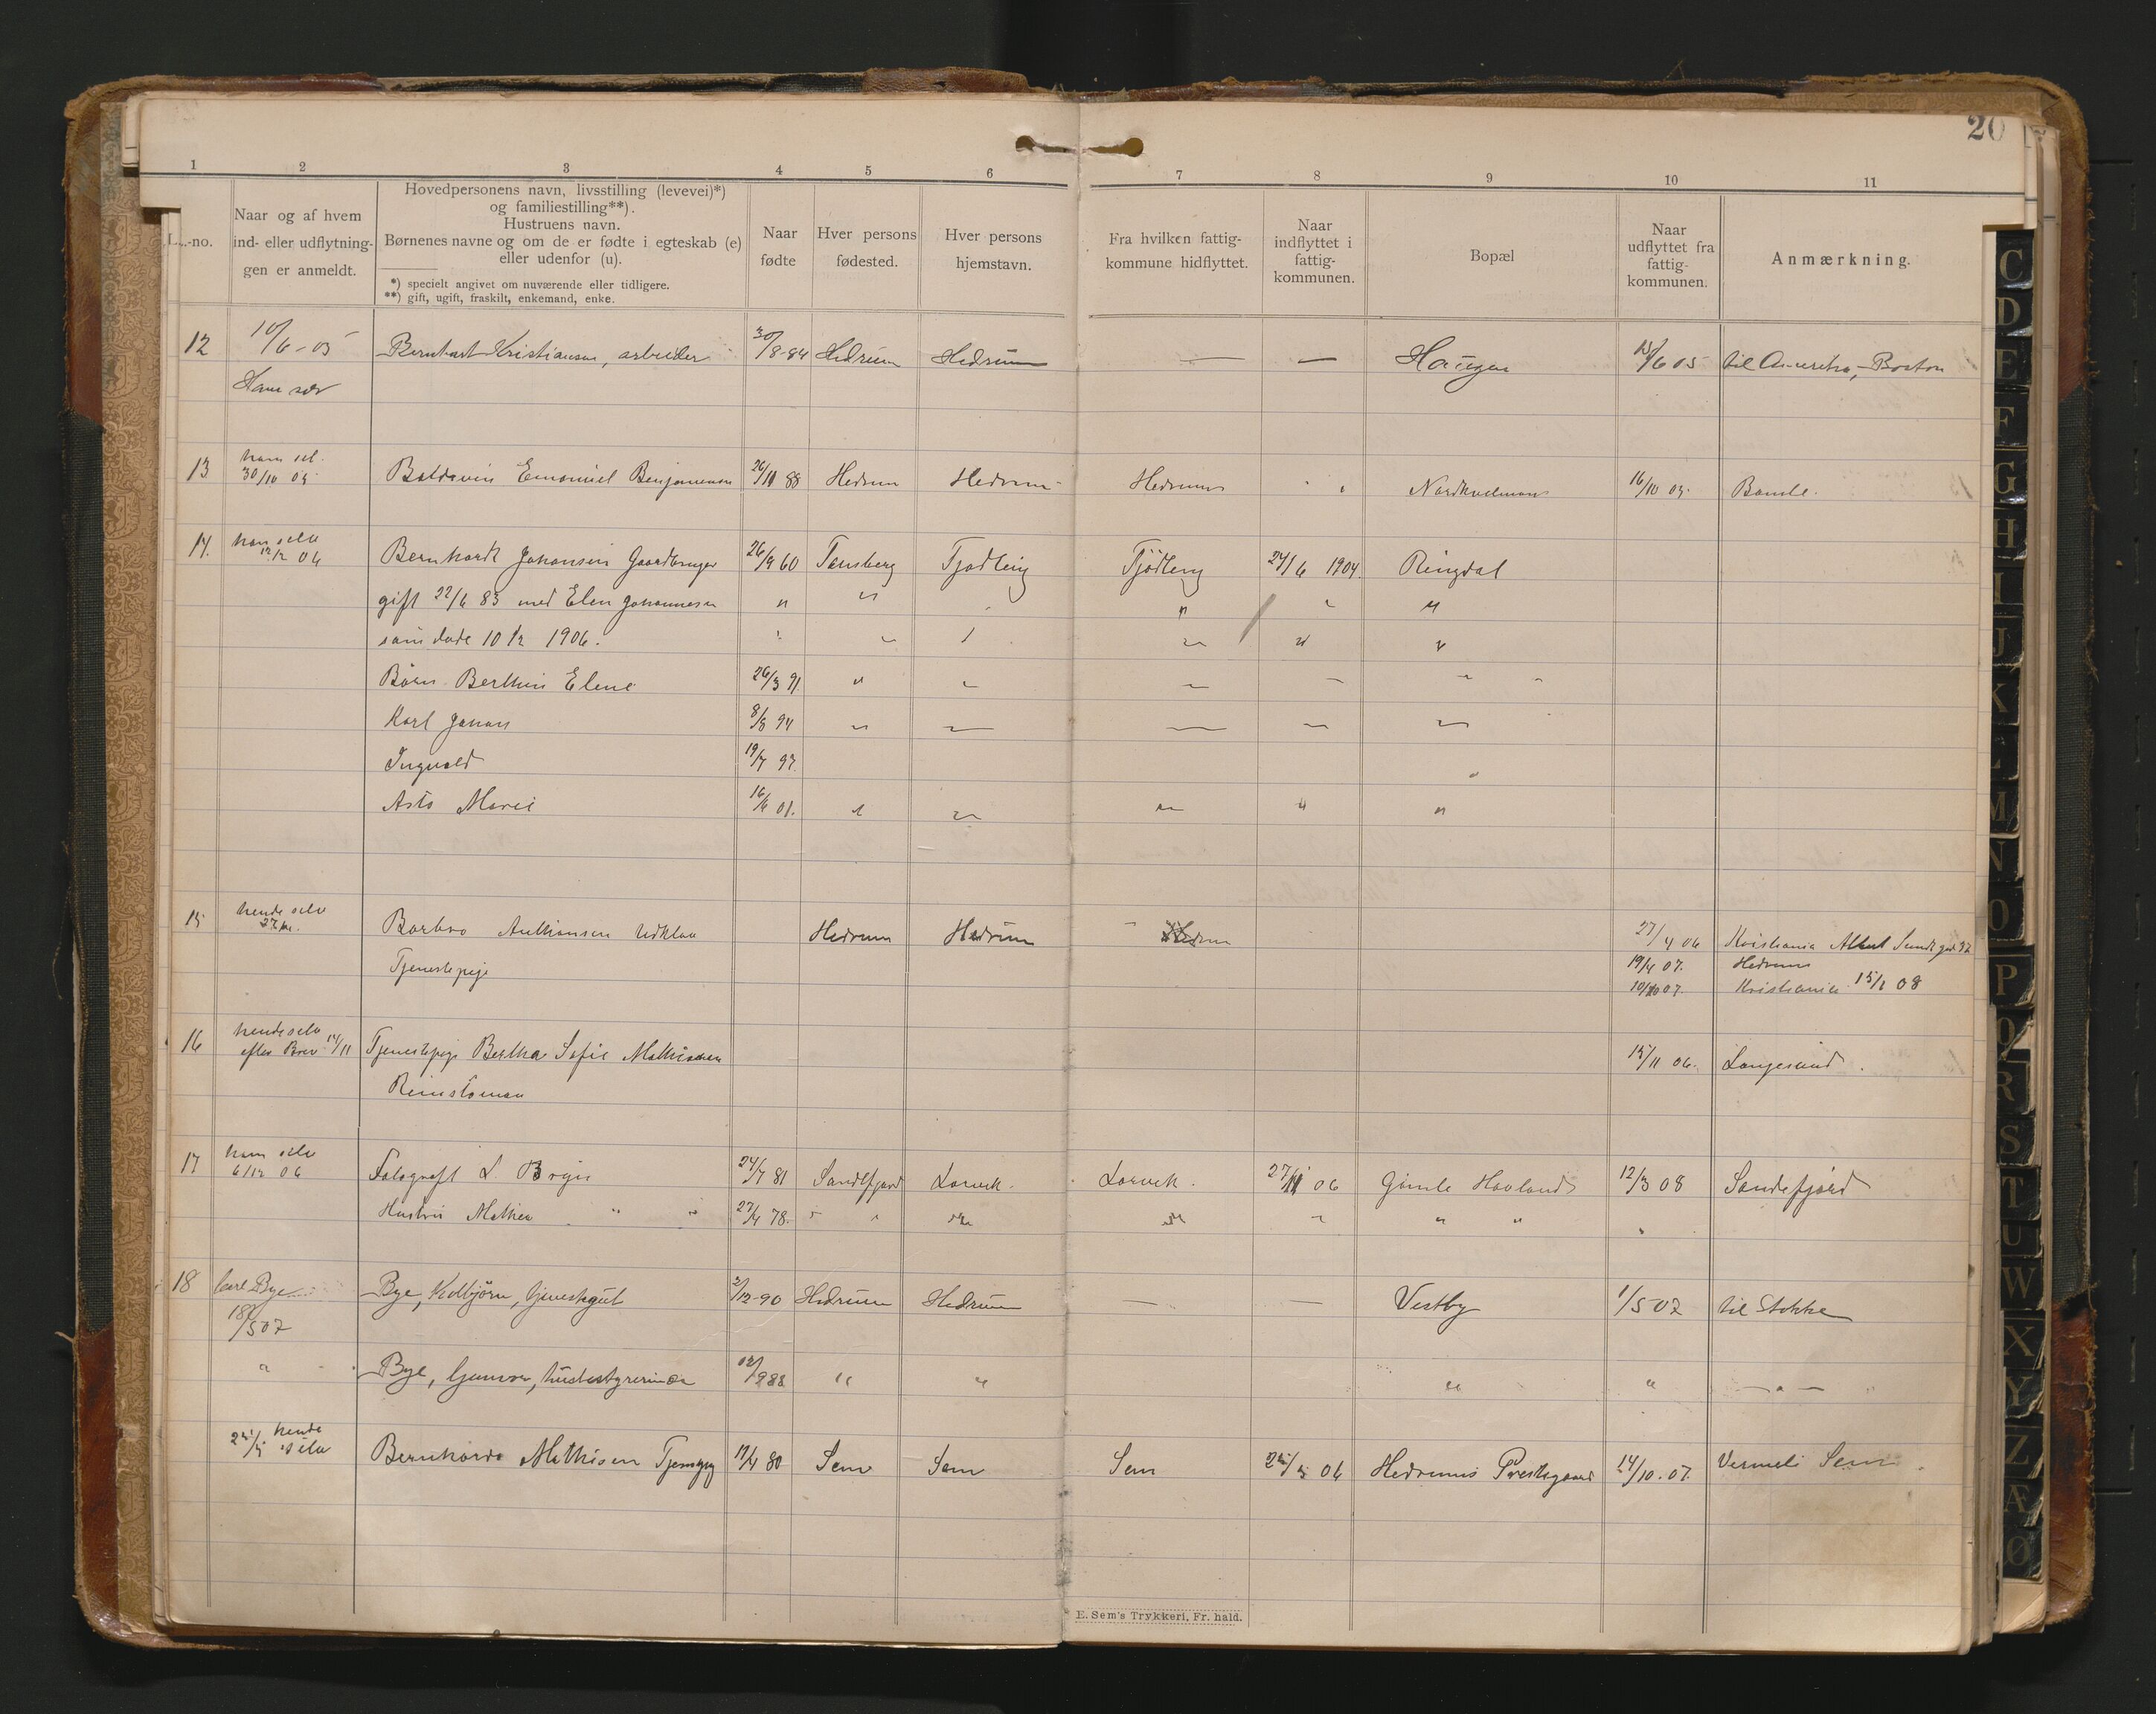 20
1 2 3 4 5 6 7 8 9 10 11
L.-no.
Naar og af hvem
ind- eller udflytnin-
gen er anmeldt.
Hovedpersonens navn, livsstilling (levevei)*)
og familiestilling**).
Hustruens navn.
Børnenes navne og om de er fødte i egteskab (e)
eller udenfor (u).
*) specielt angivet om nuværende eller tidligere.
**) gift, ugift, fraskilt, enkemand, enke.
Naar
fødte
Hver persons
fødested.
Hver persons
hjemstavn.
Fra hvilken fattig-
kommune hidflyttet.
Naar
indflyttet i
fattig-
kommunen.
Bopæl
Naar
udflyttet fra
fattig-
kommunen.
Anmærkning.
12 10/6-05 Bernhart Kristiansen, arbeider 30/8-84 Hedrum Hedrum — — Haugen 15/6 05 til Amerika, Boston
Ham selv
13 ham sel. 30/10 05 Baldevin Emanuel Benjaminsen 26/11 88 Hedrum Hedrum Hedrum " " 16/10 05. Bamle.
14. ham selv 12/2 06 Bernhardt Johansen Gaardbruger 26/9 60 Tønsberg Tjødling Tjødling 24/6 1904. Ringdal
gift 22/6 83 med Elen Johannesen " " " " " "
som døde 10/2 1906. " " " " " "
Børn Berthin Eline 26/3 91 " " " " " "
Karl Johan 8/8 94 " " " " "
Ingvald 19/7 97 "
Asta Marie 16/6 01. " " " " "
15 hende selv 27/4. Barbro Anthonsen Hedrum Hedrum Hedrum 27/4 06 Kristiania Albert Sundt gd 32
Tjenestepige 19/4 07. Hedrum
10/10 07. Kristiania 15/1 08
16 hende selv
efter Brev 14/11 Tjenestepige Bertha Sofie Mathisen 15/11 06. Langesund.
17 ham selv
6/12 06 Fotograft L. Bryn 24/7 81 Sandefjord Larvik. Larvik. 27/11 06 Gimle Hovland 12/3 08 Sandefjord
Hustru Mathea " " 27/4 78. " " " " " " " "
18 Carl Bye Bye, Kolbjörn, tjenestegut 2/12-90 Hedrum Hedrum — — Vestby 1/5 07 til Stokke
18/5 07
" Bye, Gunvor, husbestyrerinde 12/9 88 " " " " — " —
25/5 hende selv Bernharda Mathisen Tjenepg 11/4 80 Sem Sem Sem 25/5 06 Hedrums Prestegaard 14/10.07. Vermeli Sem.
E. Sem's Trykkeri, Fr. hald.
C
D
E
F
G
H
I
J
K
L
M
N
O
P
Q
R
S
T
U
W
X
Y
Z
Æ
Ø